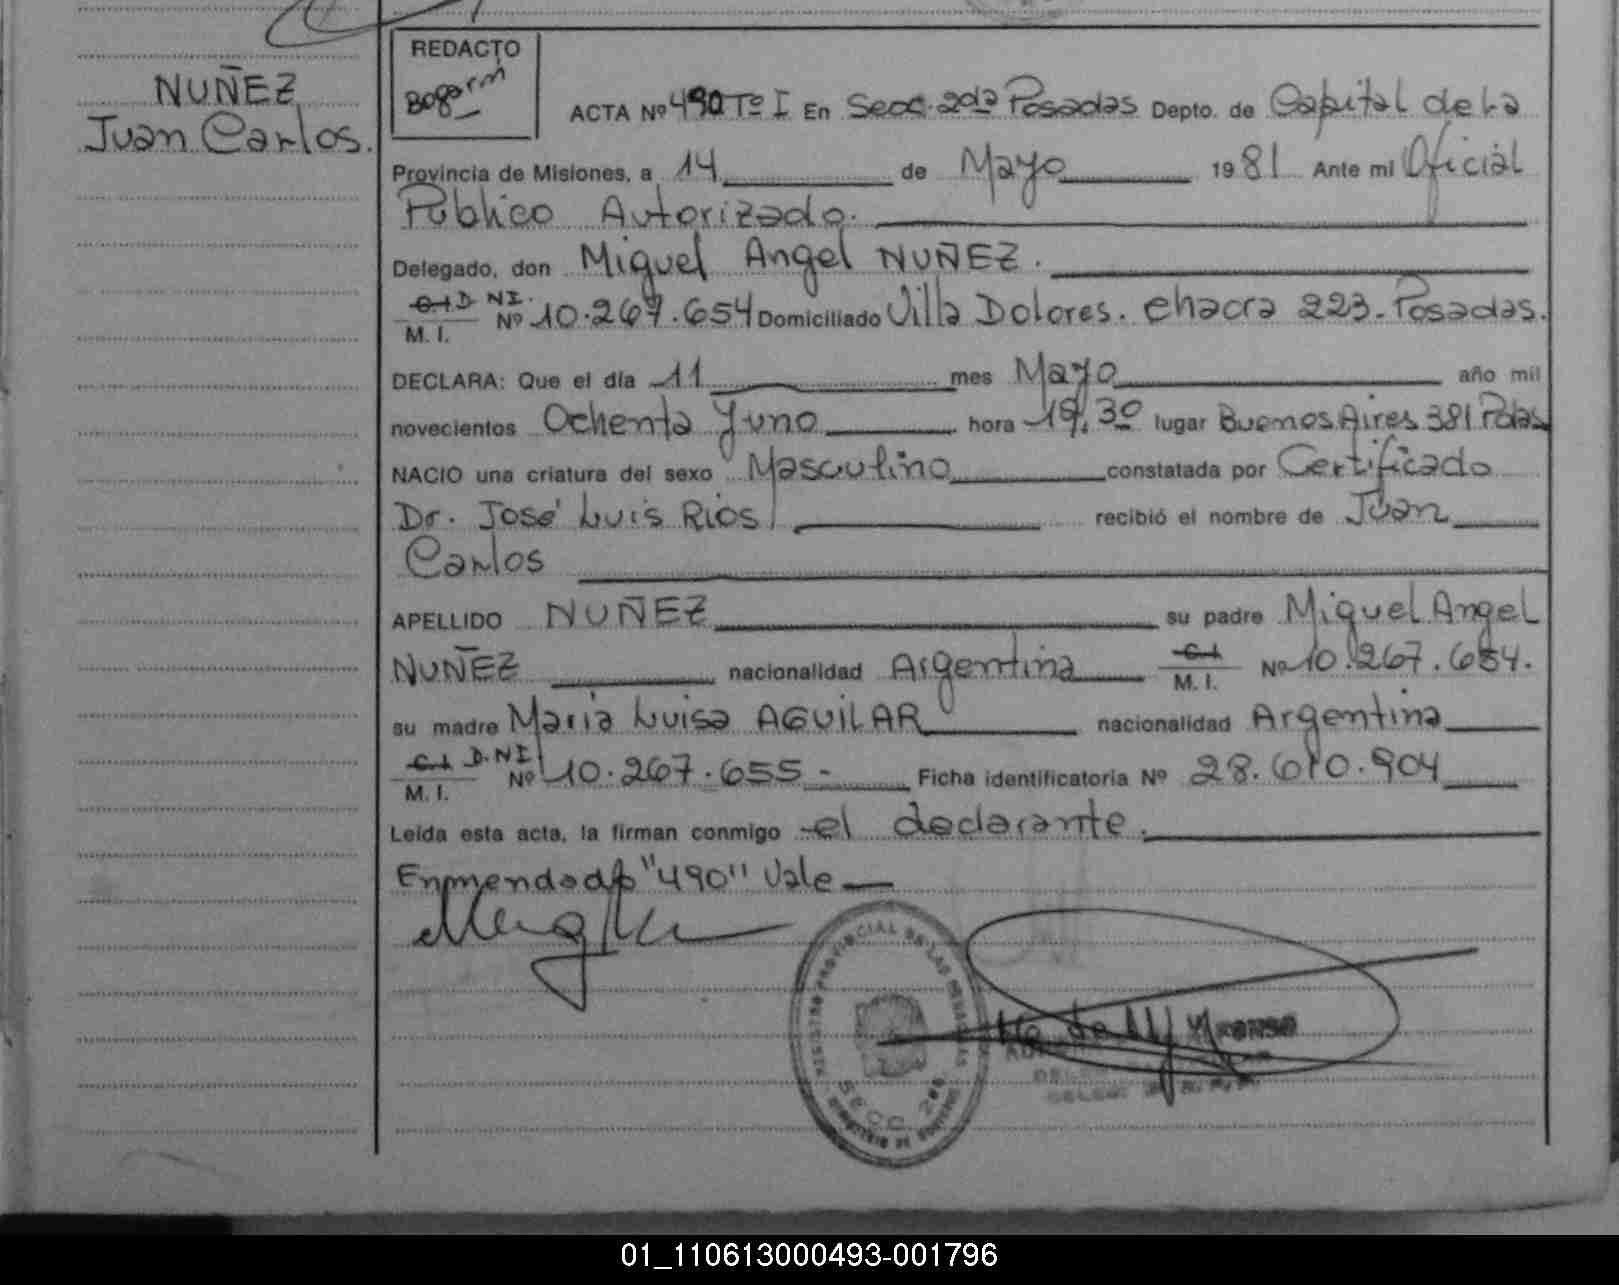 NUÑEZ
Juan Carlos.
REDACTO
Bogarin
ACTA Nº 490 Tº I En Secc. 2da Posadas Depto. de Capital de La
Provincia de Misiones, a 14 de Mayo 1981 Ante mi Oficial
Público Autorizado.
Delegado, don Miguel Angel NUÑEZ.
C.I D.NI.
M. I. Nº 10.267.654 Domiciliado Villa Dolores. Chacra 223. Posadas.
DECLARA: Que el día 11 mes Mayo año mil
novecientos Ochenta y uno hora 19,30 lugar Buenos Aires 381 Pdas
NACIO una criatura del sexo Masculino constatada por Certificado
Dr. José Luis Rios recibió el nombre de Juan
Carlos
APELLIDO NUÑEZ su padre Miguel Angel
NUÑEZ nacionalidad Argentina C.I M. I. Nº 10.267.654.
su madre Maria Luisa AGUILAR nacionalidad Argentina
C.I D.NI
M. I. Nº 10.267.655.- Ficha identificatoria Nº 28.610.904
Leída esta acta, la firman conmigo el declarante.
Enmendado "490" Vale
REGISTRO PROVINCIAL DE LAS PERSONAS
SECC. 2da
01_110613000493-001796